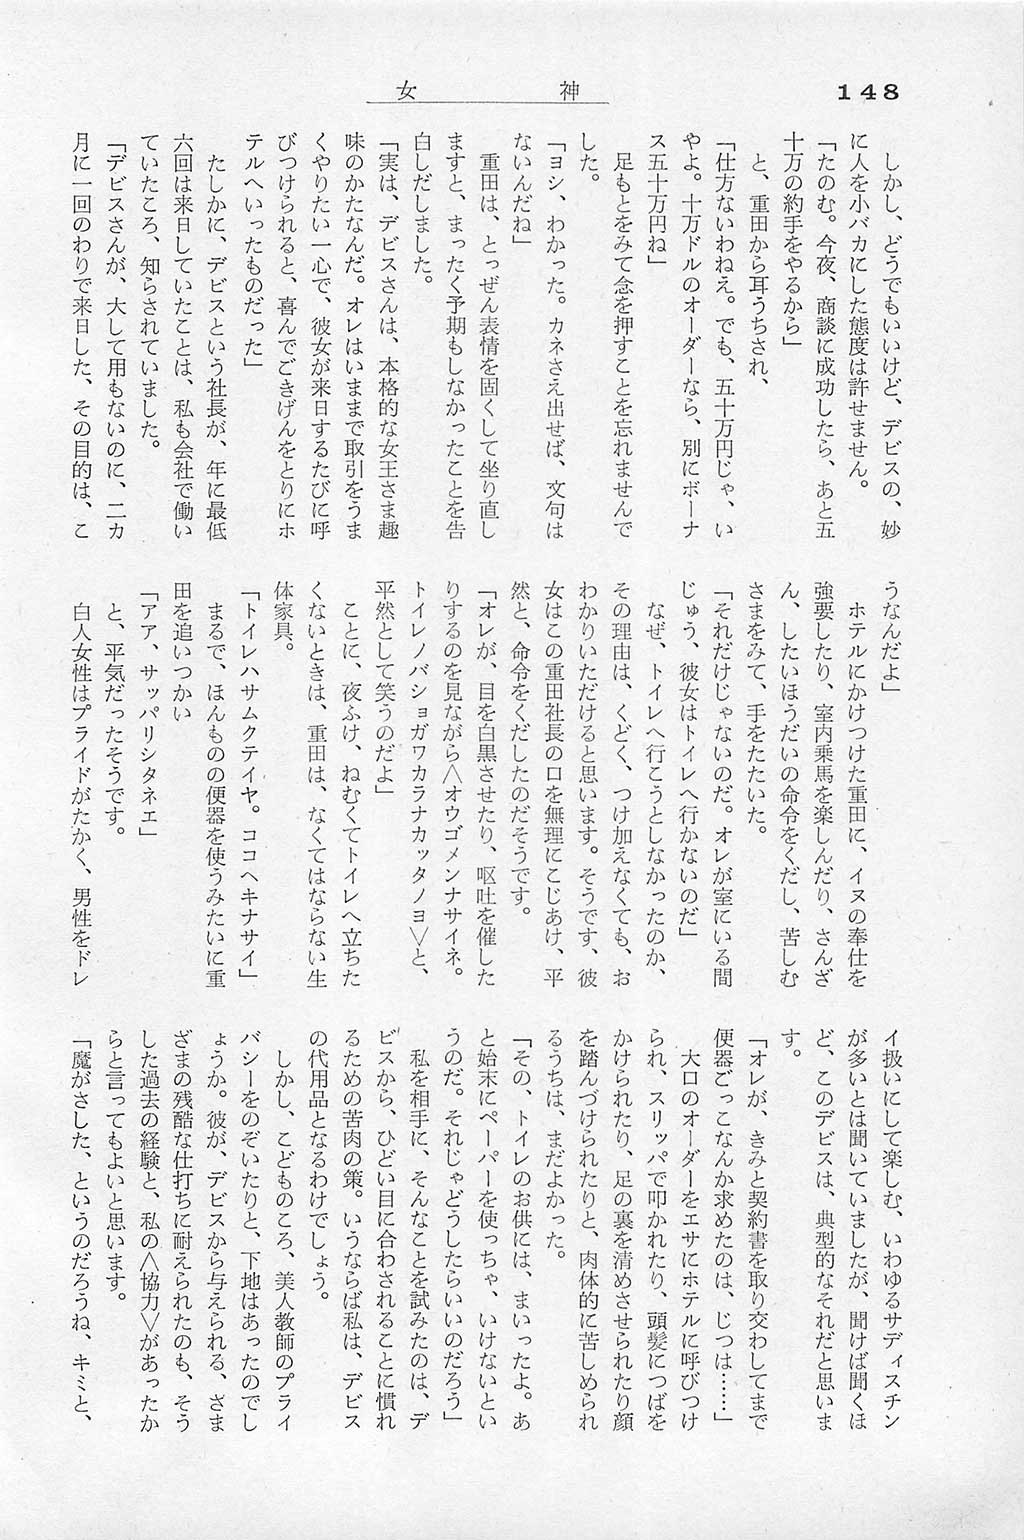 女神
148
しかし、どうでもいいけど、デビスの、妙
に人を小バカにした態度は許せません。
「たのむ。今夜、商談に成功したら、あと五
十万の約手をやるから」
と、重田から耳うちされ、
「仕方ないわねえ。でも、五十万円じゃ、い
やよ。十万ドルのオーダーなら、別にボーナ
ス五十万円ね」
足もとをみて念を押すことを忘れませんで
した。
「ヨシ、わかった。カネさえ出せば、文句は
ないんだね」
重田は、とつぜん表情を固くして坐り直し
ますと、まったく予期もしなかったことを告
白しだしました。
「実は、デビスさんは、本格的な女王さま趣
味のかたなんだ。オレはいままで取引をうま
くやりたい一心で、彼女が来日するたびに呼
びつけられると、喜んでごきげんをとりにホ
テルへいったものだった」
たしかに、デビスという社長が、年に最低
六回は来日していたことは、私も会社で働い
ていたころ、知らされていました。
「デビスさんが、大して用もないのに、二カ
月に一回のわりで来日した、その目的は、こ
うなんだよ」
ホテルにかけつけた重田に、イヌの奉仕を
強要したり、室内乗馬を楽しんだり、さんざ
ん、したいほうだいの命令をくだし、苦しむ
さまをみて、手をたたいた。
「それだけじゃないのだ。オレが室にいる間
じゅう、彼女はトイレへ行かないのだ」
なぜ、トイレへ行こうとしなかったのか、
その理由は、くどく、つけ加えなくても、お
わかりいただけると思います。そうです、彼
女はこの重田社長の口を無理にこじあけ、平
然と、命令をくだしたのだそうです。
「オレが、目を白黒させたり、嘔吐を催した
りするのを見ながら＜オウゴメンナサイネ。
トイレノバショガワカラナカッタノヨ＞と、
平然として笑うのだよ」
ことに、夜ふけ、ねむくてトイレへ立ちた
くないときは、重田は、なくてはならない生
体家具。
「トイレハサムクテイヤ。ココヘキナサイ」
まるで、ほんものの便器を使うみたいに重
田を追いつかい
「アア、サッパリシタネエ」
と、平気だったそうです。
白人女性はプライドがたかく、男性をドレ
イ扱いにして楽しむ、いわゆるサディスチン
が多いとは聞いていましたが、聞けば聞くほ
ど、このデビスは、典型的なそれだと思いま
す。
「オレが、きみと契約書を取り交わしてまで
便器ごっこなんか求めたのは、じつは……」
大口のオーダーをエサにホテルに呼びつけ
られ、スリッパで叩かれたり、頭髪につばを
かけられたり、足の裏を清めさせられたり顔
を踏んづけられたりと、肉体的に苦しめられ
るうちは、まだよかった。
「その、トイレのお供には、まいったよ。あ
と始末にペーパーを使っちゃ、いけないとい
うのだ。それじゃどうしたらいいのだろう」
私を相手に、そんなことを試みたのは、デ
ビスから、ひどい目に合わされることに慣れ
るための苦肉の策。いうならば私は、デビス
の代用品となるわけでしょう。
しかし、こどものころ、美人教師のプライ
バシーをのぞいたりと、下地はあったのでし
ょうか。彼が、デビスから与えられる、さま
ざまの残酷な仕打ちに耐えられたのも、そう
した過去の経験と、私の＜協力＞があったか
らと言ってもよいと思います。
「魔がさした、というのだろうね、キミと、